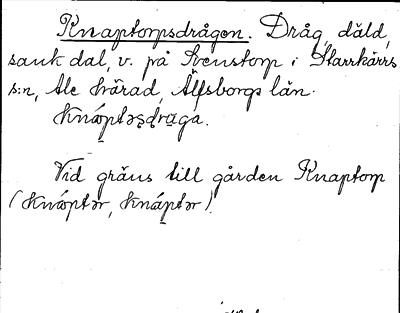 Knaptorpsdrågen. Dråg, däld,
sank dal, v. på Svenstorp i Starrkärrs
s:n, Ale härad, Älfsborgs län.
Knáptəsdraga.
Vid gräns till gården Knaptorp
(Knáptər, Knáptər).